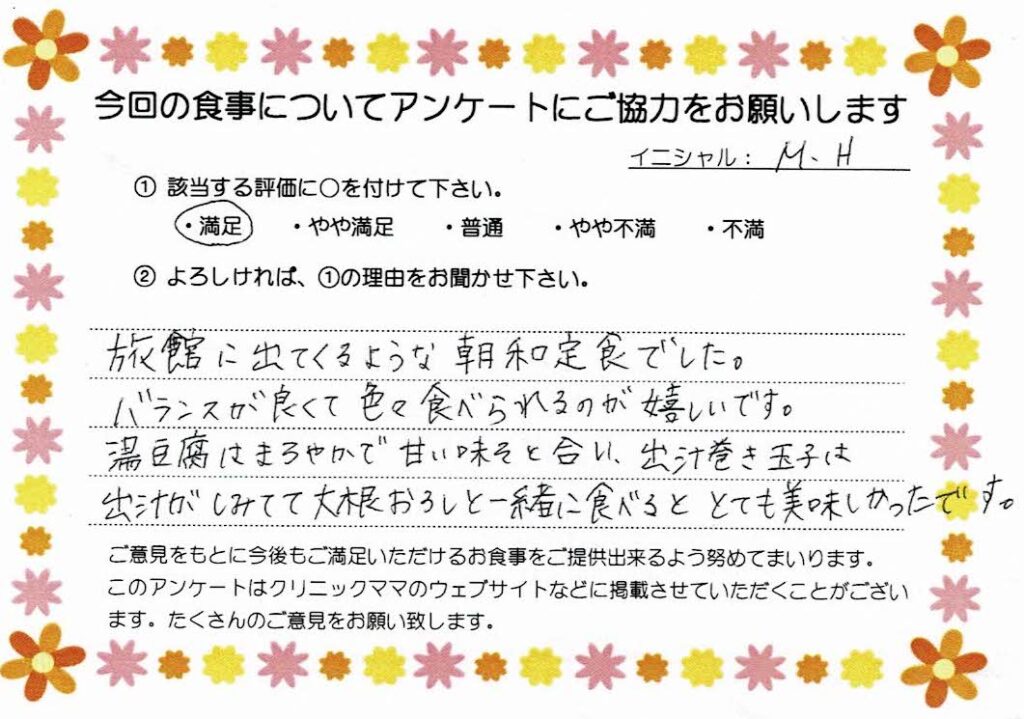 今回の食事についてアンケートにご協力をお願いします
イニシャル： M.H
① 該当する評価に○を付けて下さい。
・満足 ・やや満足 ・普通 ・やや不満 ・不満
② よろしければ、①の理由をお聞かせ下さい。
旅館に出てくるような朝和定食でした。
バランスが良くて色々食べられるのが嬉しいです。
湯豆腐はまろやかで甘い味そと合い、出汁巻き玉子は
出汁がしみてて大根おろしと一緒に食べるととても美味しかったです。
ご意見をもとに今後もご満足いただけるお食事をご提供出来るよう努めてまいります。
このアンケートはクリニックママのウェブサイトなどに掲載させていただくことがござい
ます。たくさんのご意見をお願い致します。